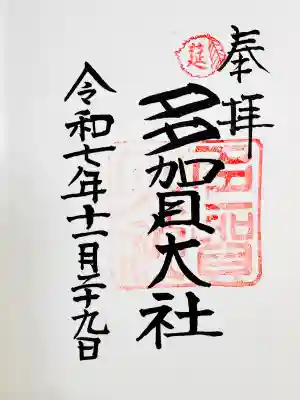 奉拝
延
多賀大社
令和七年十一月二十九日